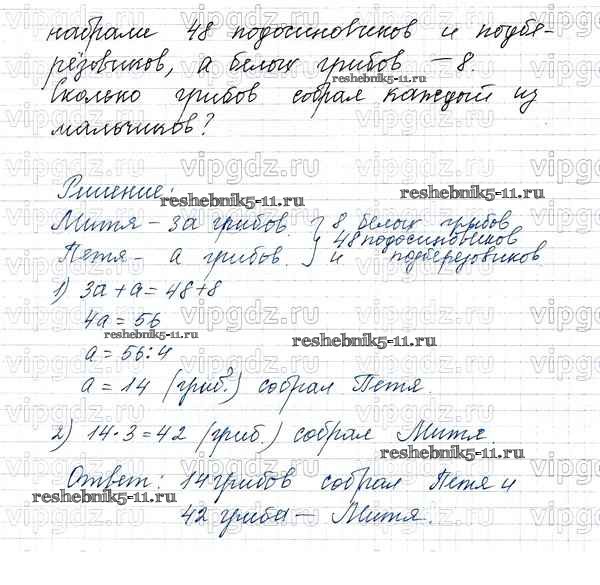 набрали 48 подосиновиков и подбе-
рёзовиков, а белых грибов – 8.
Сколько грибов собрал каждый из
мальчиков?
Решение:
Митя – 3а грибов. } 8 белых грибов
Петя – а грибов. } 48 подосиновиков и подберезовиков
1) 3а + а = 48 + 8
4а = 56
а = 56 : 4
а = 14 (гриб.) собрал Петя.
2) 14 · 3 = 42 (гриб.) собрал Митя.
Ответ: 14 грибов собрал Петя и
42 гриба – Митя.
vipgdz.ru
reshebnik5-11.ru